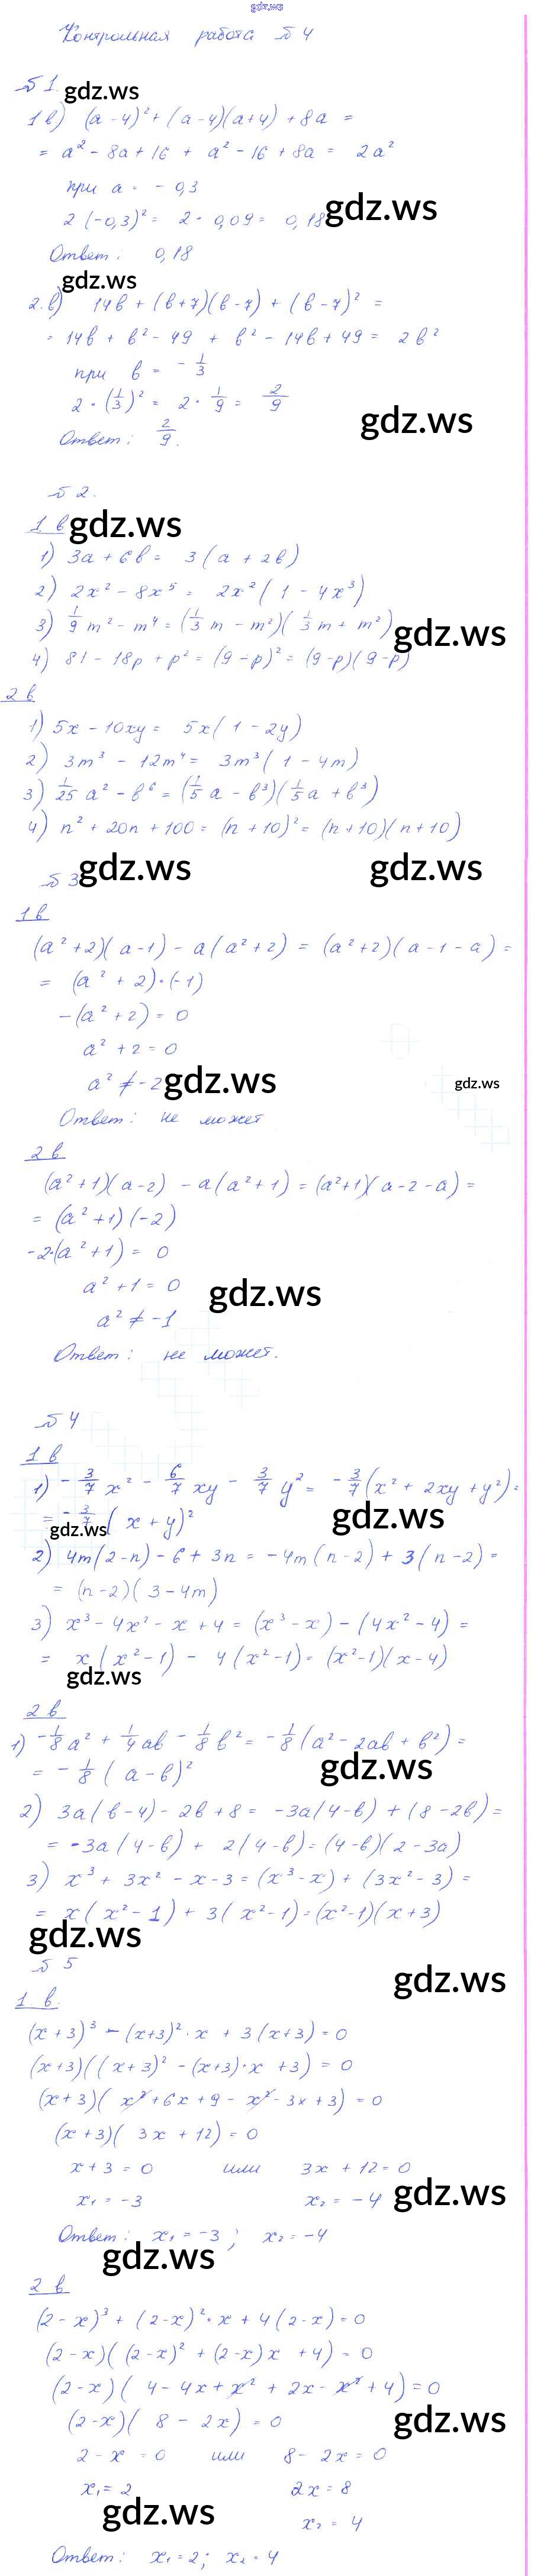 gdz.ws
Контрольная работа №4
№1 gdz.ws
1в) (a-4)²+(a-4)(a+4)+8a =
= a²-8a+16 + a²-16+8a = 2a²
при a = -0,3
2(-0,3)² = 2·0,09 = 0,18 gdz.ws
Ответ: 0,18
gdz.ws
2.в) 14в + (в+7)(в-7) + (в-7)² =
= 14в + в²-49 + в²-14в+49 = 2в²
при в = -1/3
2·(1/3)² = 2·1/9 = 2/9
gdz.ws
Ответ: 2/9.
№2.
1 в gdz.ws
1) 3a+6в = 3(a+2в)
2) 2x²-8x⁵ = 2x²(1-4x³)
3) 1/9 m²-m⁴ = (1/3 m - m²)(1/3 m + m²) gdz.ws
4) 81-18p+p² = (9-p)² = (9-p)(9-p)
2 в
1) 5x-10xy = 5x(1-2y)
2) 3m³-12m⁴ = 3m³(1-4m)
3) 1/25 a²-в⁶ = (1/5 a - в³)(1/5 a + в³)
4) n²+20n+100 = (n+10)² = (n+10)(n+10)
№3 gdz.ws gdz.ws
1 в
(a²+2)(a-1) - a(a²+2) = (a²+2)(a-1-a) =
= (a²+2)·(-1)
-(a²+2) = 0
a²+2 = 0
a² ≠ -2 gdz.ws gdz.ws
Ответ: не может
2 в
(a²+1)(a-2) - a(a²+1) = (a²+1)(a-2-a) =
= (a²+1)(-2)
-2·(a²+1) = 0
a²+1 = 0 gdz.ws
a² ≠ -1
Ответ: не может.
№4
1 в
1) -3/7 x² - 6/7 xy - 3/7 y² = -3/7 (x²+2xy+y²) =
= -3/7 (x+y)² gdz.ws gdz.ws
2) 4m(2-n)-6+3n = -4m(n-2)+3(n-2) =
= (n-2)(3-4m)
3) x³-4x²-x+4 = (x³-x)-(4x²-4) =
= x(x²-1) - 4(x²-1) = (x²-1)(x-4)
gdz.ws
2 в
1) -1/8 a² + 1/4 aв - 1/8 в² = -1/8 (a²-2aв+в²) =
= -1/8 (a-в)² gdz.ws
2) 3a(в-4)-2в+8 = -3a(4-в)+(8-2в) =
= -3a(4-в) + 2(4-в) = (4-в)(2-3a)
3) x³+3x²-x-3 = (x³-x)+(3x²-3) =
= x(x²-1)+3(x²-1) = (x²-1)(x+3)
gdz.ws
№5 gdz.ws
1 в.
(x+3)³-(x+3)²·x+3(x+3) = 0
(x+3)((x+3)²-(x+3)·x+3) = 0
(x+3)(x²+6x+9-x²-3x+3) = 0
(x+3)(3x+12) = 0
x+3 = 0 или 3x+12 = 0
x₁ = -3 x₂ = -4 gdz.ws
Ответ: x₁ = -3; x₂ = -4
gdz.ws
2 в
(2-x)³+(2-x)²·x+4(2-x) = 0
(2-x)((2-x)²+(2-x)x+4) = 0
(2-x)(4-4x+x²+2x-x²+4) = 0
(2-x)(8-2x) = 0 gdz.ws
2-x = 0 или 8-2x = 0
x₁ = 2 2x = 8
gdz.ws x₂ = 4
Ответ: x₁ = 2; x₂ = 4